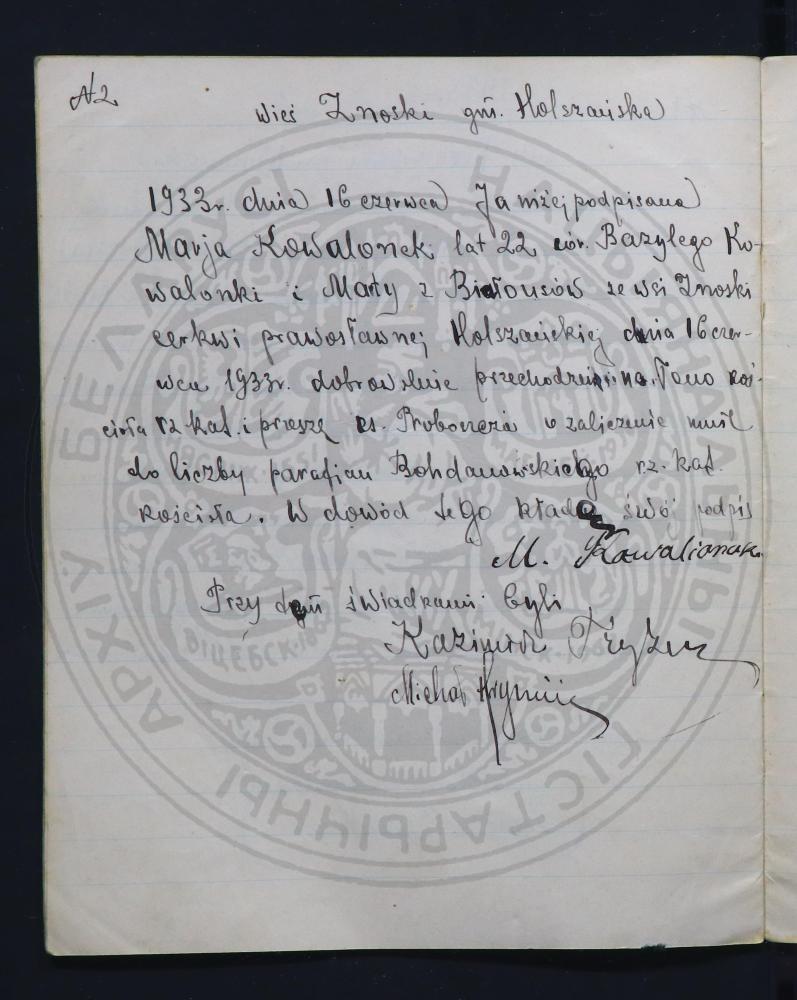 №2
wieś Znoski gm. Holszańska
1933r. dnia 16 czerwca Ja niżej podpisana
Marja Kowalonek lat 22 cór. Bazylego Ko-
walonki i Marty z Białousów ze wsi Znoski
cerkwi prawosławnej Holszańskiej dnia 16 czer-
wca 1933r. dobrowolnie przechodzę na łono koś-
cioła rz kat. i proszę ks. Proboszcza o zaliczenie mnie
do liczby parafjan Bohdanowskiego rz. kat.
kościoła. W dowód tego kładę swój podpis
M. Kowalionak
Przy dym świadkami byli
Kazimierz
Michał Hryniu
НАЦЫЯНАЛЬНЫ ГІСТАРЫЧНЫ АРХІЎ БЕЛАРУСІ
ВІЦЕБСК